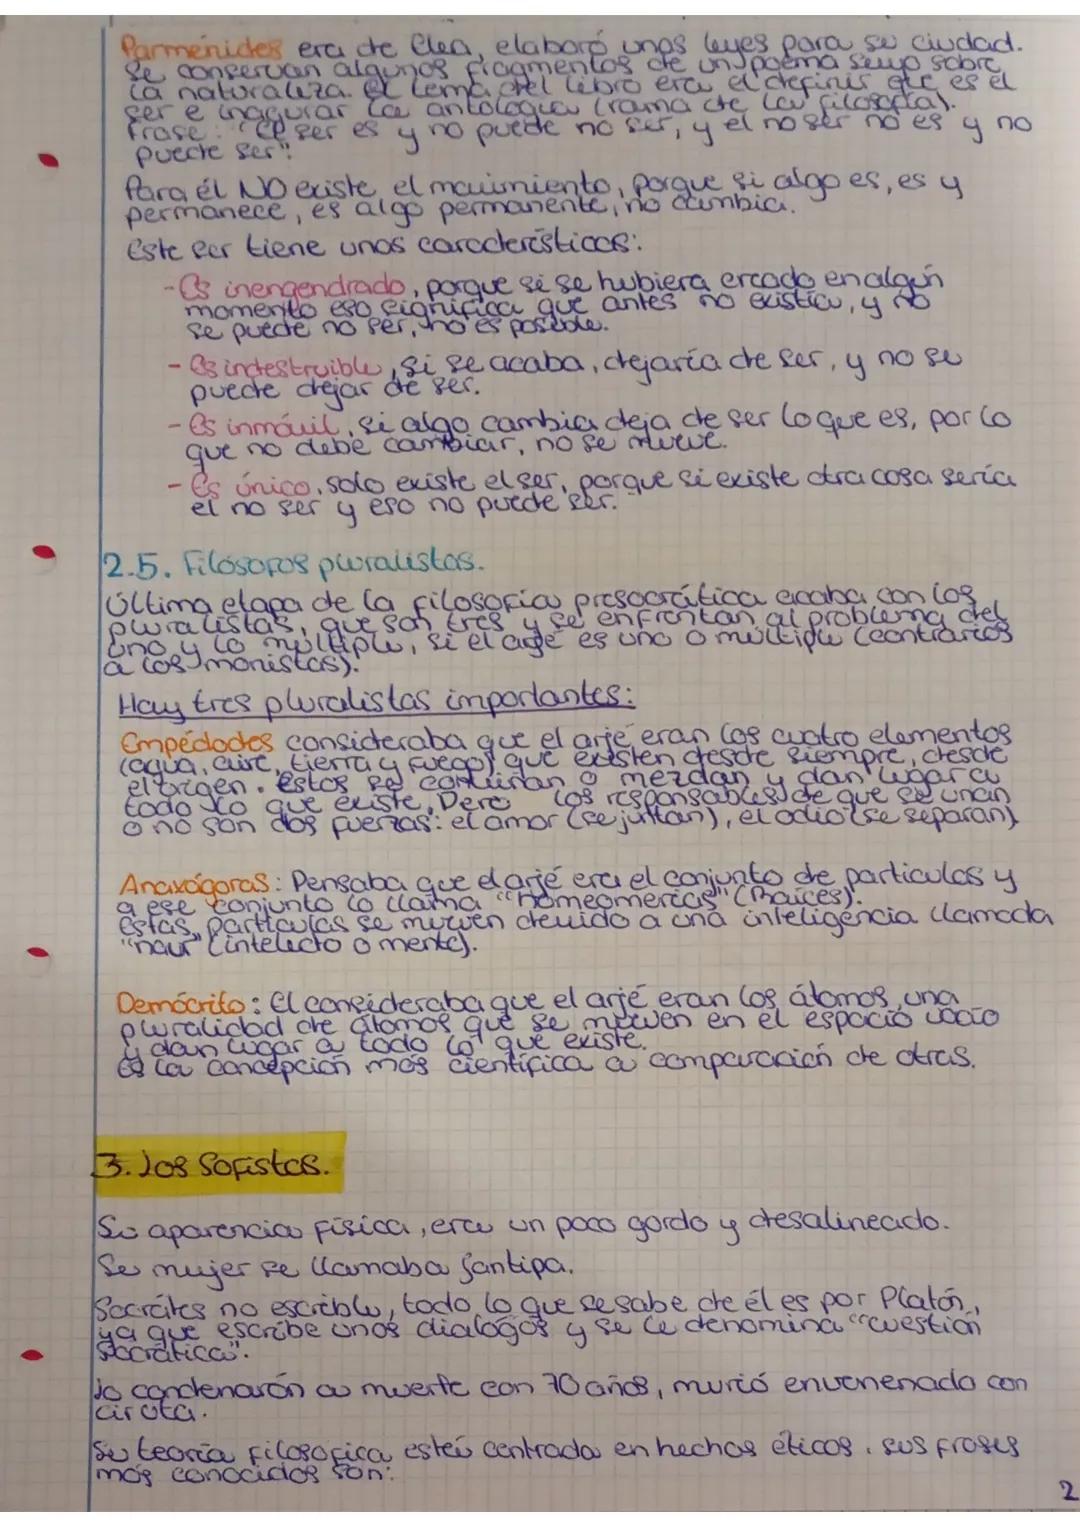 Parménides era de Elea, elaboró unas leyes para su ciudad.
Se conservan algunos fragmentos de un poema suyo sobre
la naturaleza. El tema del libro era el definir que es el
ser e inaugurar la antología (rama de la filosofía).
Frase: "El ser es y no puede no ser, y el no ser no es y no
puede ser".
Para él NO existe el movimiento, porque si algo es, es y
permanece, es algo permanente, no cambia.
Este ser tiene unas características:
- Es inengendrado, porque si se hubiera creado en algún
momento eso significa que antes no existía, y no
se puede no ser, no es posible.
- Es indestruible, si se acaba, dejaría de ser, y no se
puede dejar de ser.
- Es inmóvil, si algo cambia deja de ser lo que es, por lo
que no debe cambiar, no se mueve.
- Es único, solo existe el ser, porque si existe otra cosa sería
el no ser y eso no puede ser.
2.5. Filósofos pluralistas.
Última etapa de la filosofía presocrática acaba con los
pluralistas, que son tres y se enfrontan al problema del
uno y lo múltiple, si el arjé es uno o múltiple (contrarios
a los monistas).
Hay tres pluralistas importantes:
Empédocles consideraba que el arjé eran los cuatro elementos
(agua, aire, tierra y fuego) que existen desde siempre, desde
el origen. Estos se continan o mezclan y dan lugar a
todo lo que existe. Pero los responsables de que se unan
o no son dos fuerzas: el amor (se juntan), el odio (se separan)
Anaxágoras: Pensaba que el arjé era el conjunto de partículas y
a ese conjunto lo llama "homeomerias" (Raíces).
Estas partículas se mueven devuido a una inteligencia llamada
"naur" (intelecto o mente).
Demócrito: El consideraba que el arjé eran los átomos, una
pluralidad de átomos que se mueven en el espacio vacío
y dan lugar a todo lo que existe.
Es la concepción más científica a comparación de otras.
3. Los Sofistas.
Su aparencia física, era un poco gordo y desalineado.
Su mujer se llamaba Jantipa.
Socrátes no escribío, todo lo que se sabe de él es por Platón,
ya que escribe unos dialogós y se le denomina "cuestión
socrática".
Lo condenarón a muerte con 70 años, murió envenenado con
cirota.
Su teoría filosofica está centrada en hechos éticos. sus frases
más conocidas son:
2